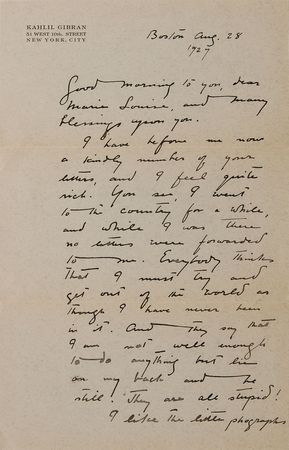 KAHLIL GIBRAN
51 WEST 10th. STREET
NEW YORK. CITY
Boston Aug. 28
1927
Good morning to you, dear
Marie Louise, and many
blessings upon you.
I have before me now
a kindly number of your
letters, and I feel quite
rich. You see, I went
to the country for a while,
and while I was there
no letters were forwarded
to me. Everybody thinks
that I must try and
get out of the world as
though I have never been
in it. And they say that
I am not well enough
to do anything but lie
on my back and be
still. They are all stupid!
I like the little phographs